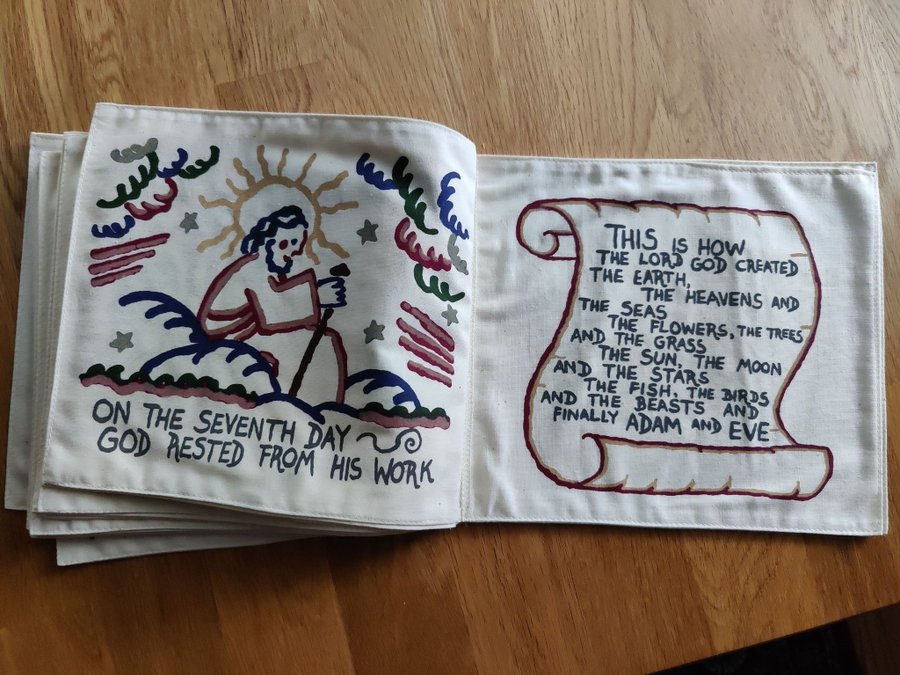 ON THE SEVENTH DAY
GOD RESTED FROM HIS WORK
THIS IS HOW
THE LORD GOD CREATED
THE EARTH,
THE HEAVENS AND
THE SEAS
THE FLOWERS, THE TREES
AND THE GRASS
THE SUN, THE MOON
AND THE STARS
THE FISH, THE BIRDS
AND THE BEASTS AND
FINALLY ADAM AND EVE